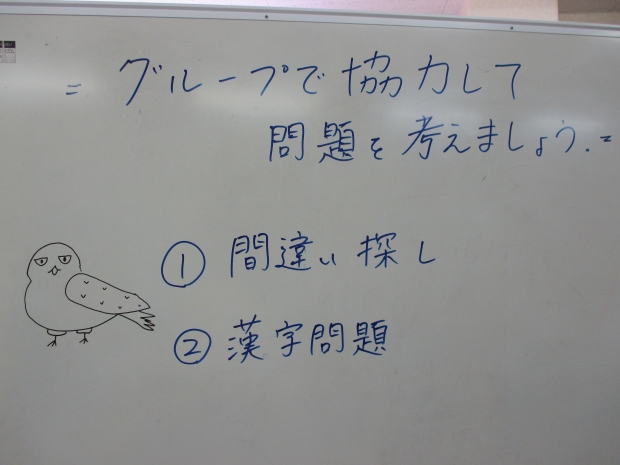 = グループで協力して
問題を考えましょう. =
① 間違い探し
② 漢字問題